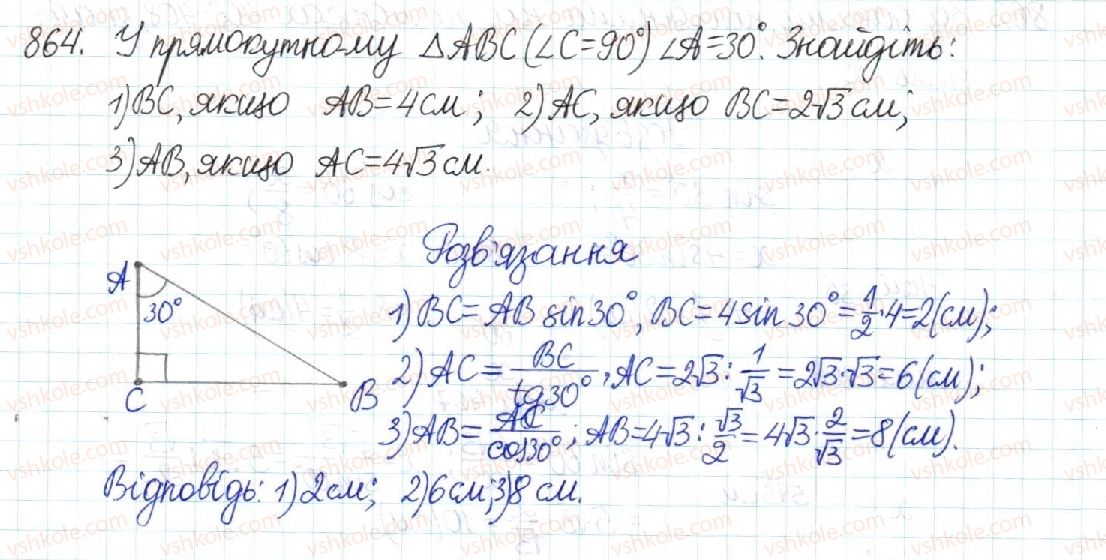 864. У прямокутному △ABC (∠C=90°) ∠A=30°. Знайдіть:
1) BC, якщо AB=4 см; 2) AC, якщо BC=2√3 см;
3) AB, якщо AC=4√3 см.
Розв'язання
A
30°
C
B
1) BC = AB sin30°, BC = 4 sin 30° = 1/2 · 4 = 2 (см);
2) AC = BC/tg30°, AC = 2√3 : 1/√3 = 2√3 · √3 = 6 (см);
3) AB = AC/cos30°; AB = 4√3 : √3/2 = 4√3 · 2/√3 = 8 (см).
Відповідь: 1) 2 см; 2) 6 см; 3) 8 см.
vshkole.com